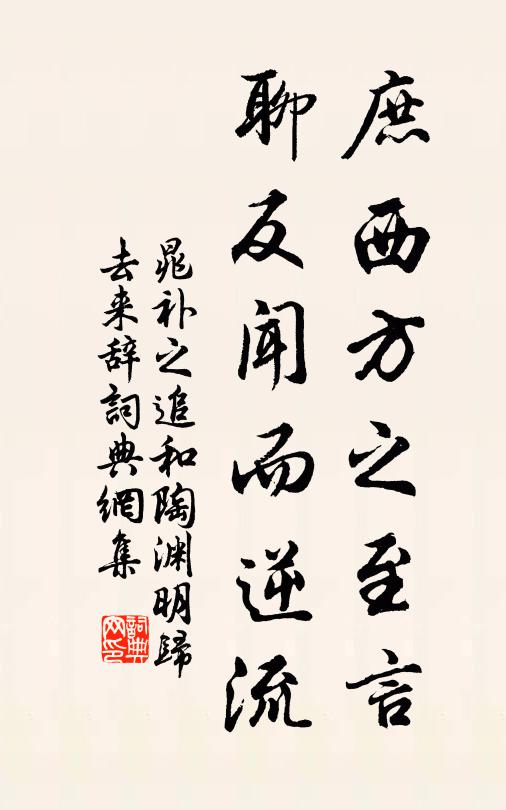 庶西方之至言
聊反闻而逆流
晁补之追和陶渊明歸
去来辞詞典網集
詞典网印